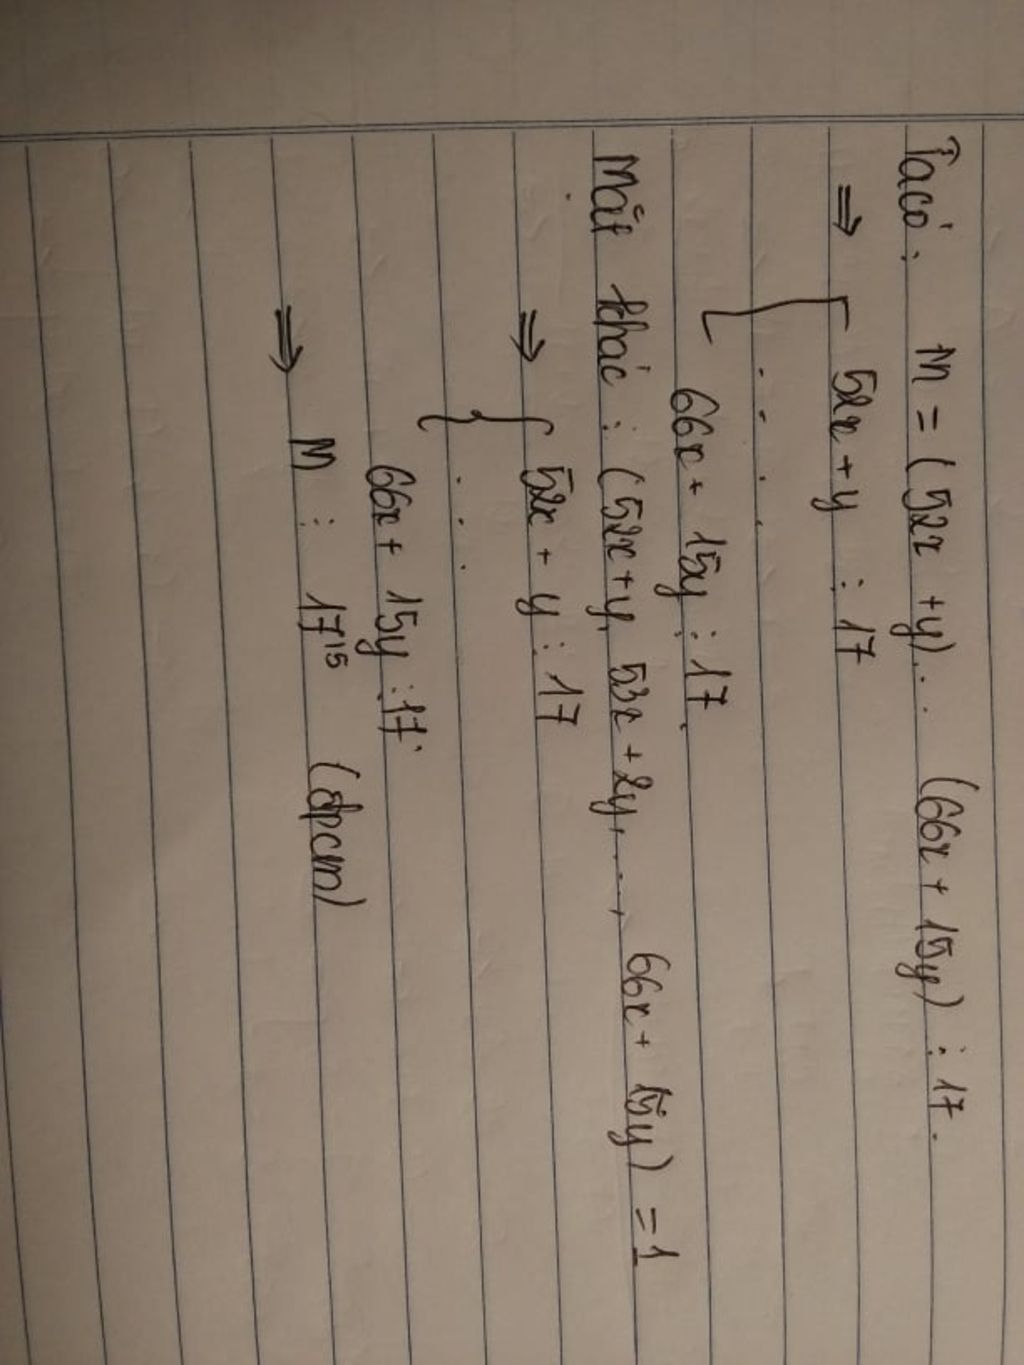 Ta có: M = (52x + y)... (66x + 15y) ⋮ 17.
⇒ [ 52x + y ⋮ 17
....
66x + 15y ⋮ 17.
Mặt khác : (52x+y, 53x + 2y, ..., 66x + 15y) = 1
⇒ { 52x + y ⋮ 17
...
66x + 15y ⋮ 17.
⇒ M ⋮ 17¹⁵ (đpcm)